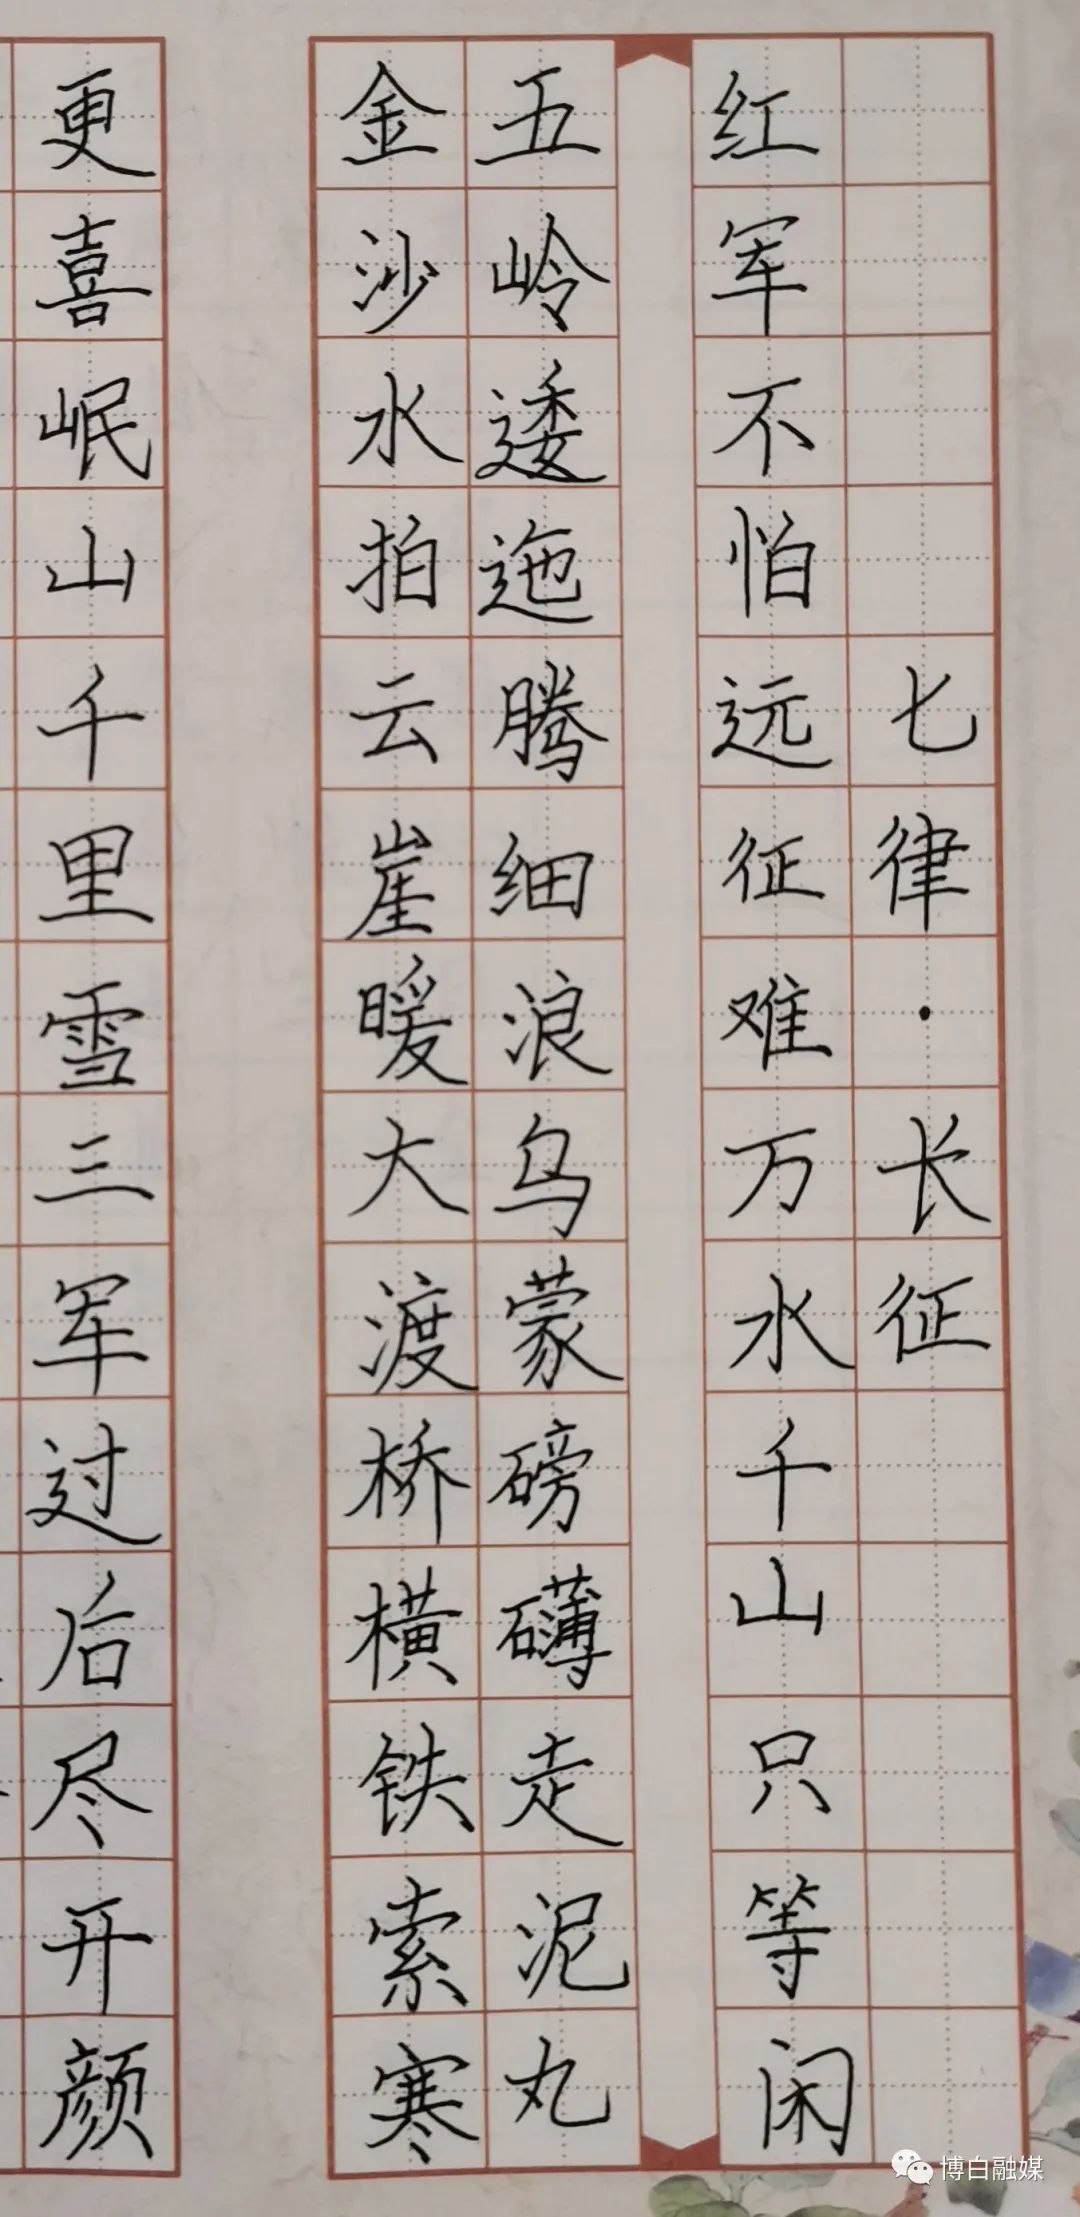 七律·长征
红军不怕远征难万水千山只等闲
五岭逶迤腾细浪乌蒙磅礴走泥丸
金沙水拍云崖暖大渡桥横铁索寒
更喜岷山千里雪三军过后尽开颜
博白融媒